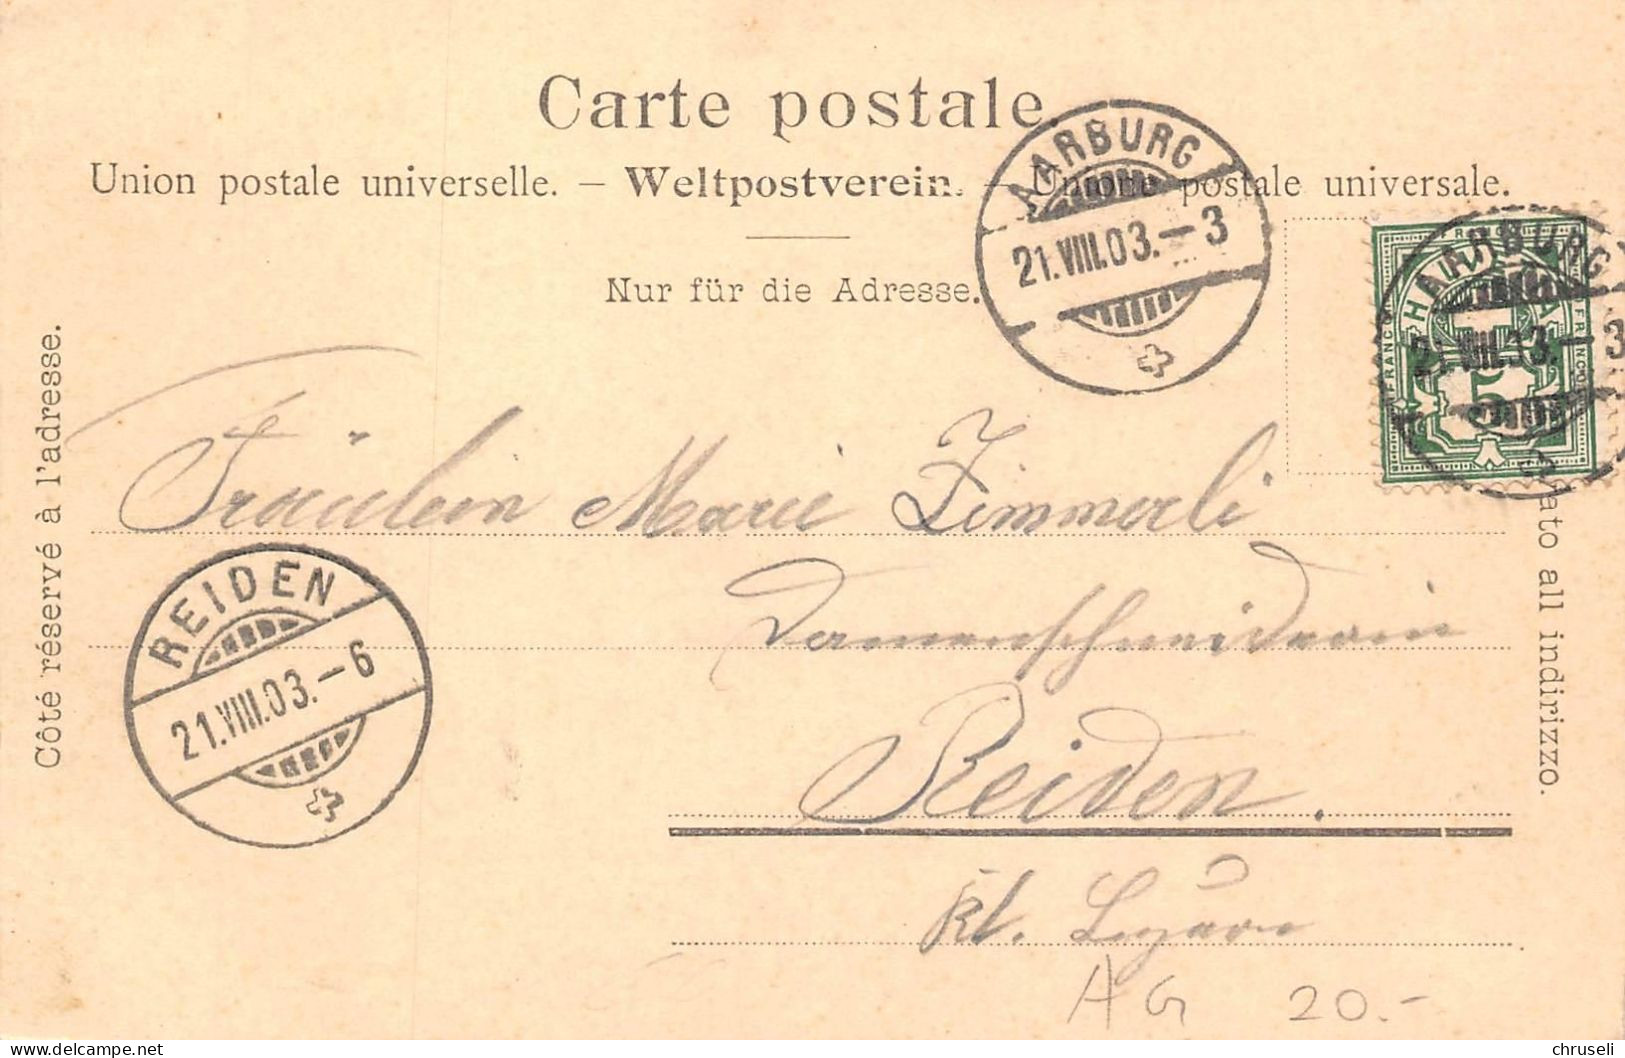 Carte postale.
Union postale universelle. – Weltpostverein. – Unione postale universale.
Nur für die Adresse.
AARBURG
21.VIII.03.–3
AARBURG
21.VIII.03.–3
FRANCO
HELVETIA
FRANCO
5
Côté réservé à l'adresse.
lato all indirizzo.
Fräulein Marie Zimmerli
Damenschneiderin
Reiden.
Kt. Luzern
REIDEN
21.VIII.03.–6
AG 20.-
delcampe.net
chruseli